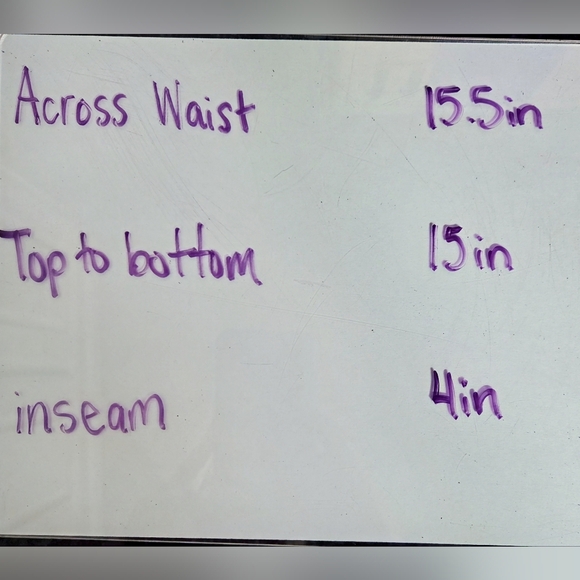 Across Waist 15.5in
Top to bottom 15in
inseam 4in